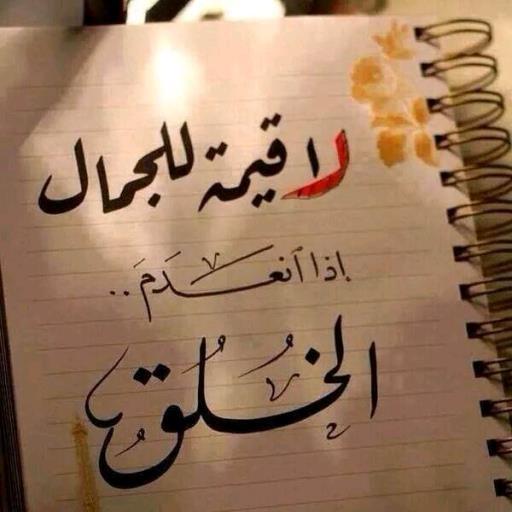 لا قيمة للجمال
إذا أنعدَمَ..
الخُلُق